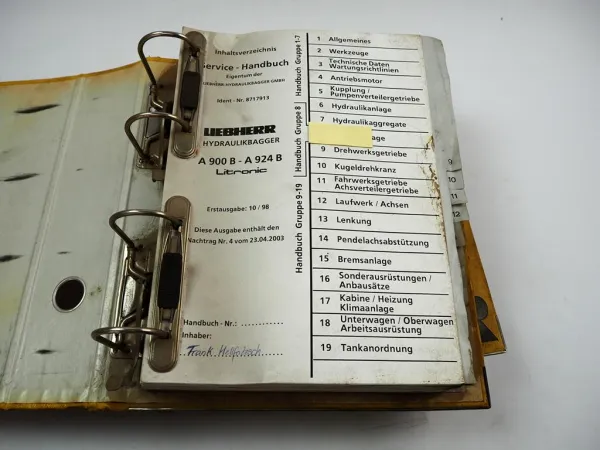 Inhaltsverzeichnis
Service - Handbuch
Eigentum der
LIEBHERR-HYDRAULIKBAGGER GMBH
Ident - Nr. 8717913
LIEBHERR
HYDRAULIKBAGGER
A 900 B - A 924 B
Litronic
Erstausgabe: 10 / 98
Diese Ausgabe enthält den
Nachtrag Nr. 4 vom 23.04.2003
Handbuch - Nr.: ............
Inhaber:
Frank
Handbuch Gruppe 1-7
Handbuch Gruppe 8
Handbuch Gruppe 9-19
1 Allgemeines
2 Werkzeuge
3 Technische Daten
Wartungsrichtlinien
4 Antriebsmotor
5 Kupplung /
Pumpenverteilergetriebe
6 Hydraulikanlage
7 Hydraulikaggregate
9 Drehwerksgetriebe
10 Kugeldrehkranz
11 Fahrwerksgetriebe
Achsverteilergetriebe
12 Laufwerk / Achsen
13 Lenkung
14 Pendelachsabstützung
15 Bremsanlage
16 Sonderausrüstungen /
Anbausätze
17 Kabine / Heizung
Klimaanlage
18 Unterwagen / Oberwagen
Arbeitsausrüstung
19 Tankanordnung
9
10
12
R